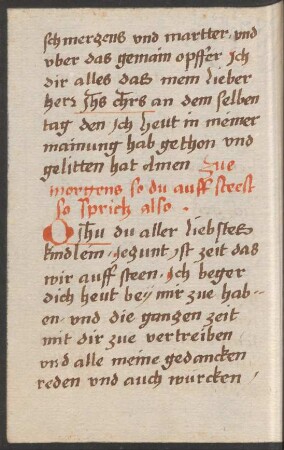 schmerzens vnd martter vnd
vber das gemain opffer Jch
dir alles das mein lieber
herr jhs chrs an dem selben
tag den Jch heut in meiner
mainung hab gethon vnd
gelitten hat Amen Zue
morgens so du auff steest
so sprich also .
O jhu du aller liebstes
kindlein, jezunt jst zeit das
wir auff steen, Jch beger
dich heut bey mir zue hab-
en, vnd die ganzen zeit
mit dir zue vertreiben
vnd alle meine gedancken
reden vnd auch würcken /